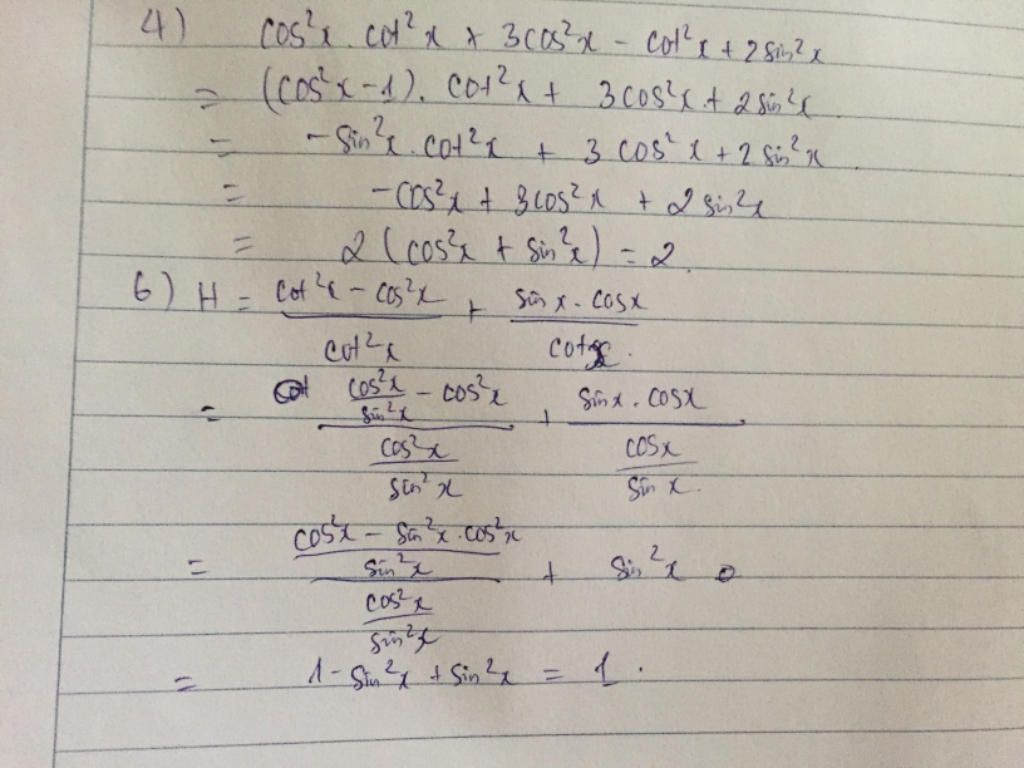 4) cos²x . cot²x + 3cos²x - cot²x + 2sin²x
= (cos²x - 1) . cot²x + 3cos²x + 2sin²x
= -sin²x . cot²x + 3cos²x + 2sin²x
= -cos²x + 3cos²x + 2sin²x
= 2(cos²x + sin²x) = 2.
6) H = (cot²x - cos²x)/(cot²x) + (sinx . cosx)/(cotx).
= (cos²x/sin²x - cos²x)/(cos²x/sin²x) + (sinx . cosx)/(cosx/sinx).
= ((cos²x - sin²x . cos²x)/sin²x)/(cos²x/sin²x) + sin²x
= 1 - sin²x + sin²x = 1.